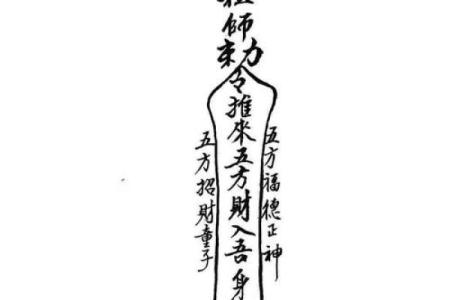 祖師敕令推來五方財入吾身
五方福德正神
五方招財童子